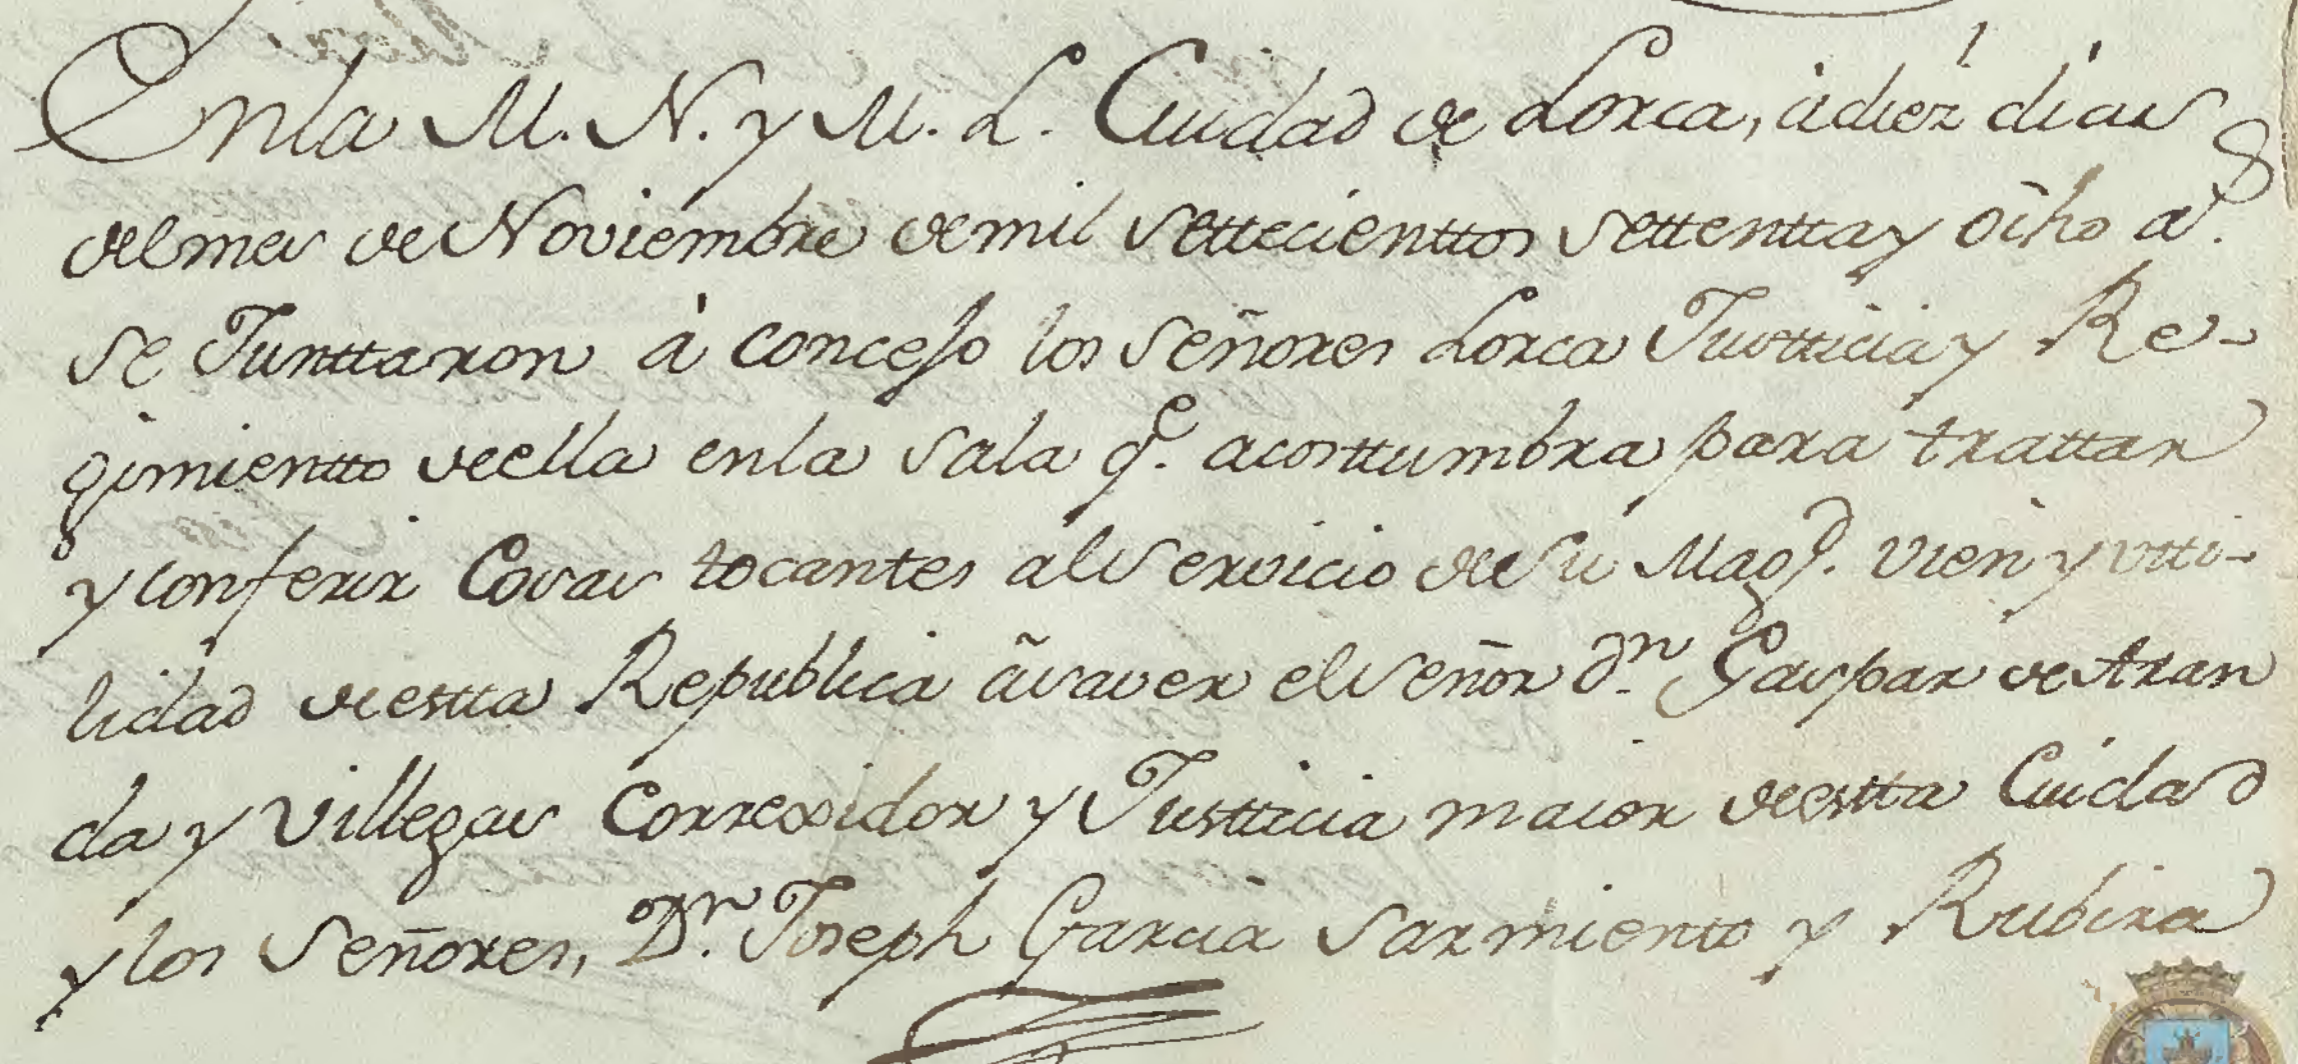 Enla M. N. y M. L. Ciudad de Lorca, à diez dias
del mes de Noviembre de mil settecienttos settentta y ocho as.
se Junttaron à concejo los señores Lorca Justticia y Re-
gimientto de ella en la sala qe. acosttumbra para trattar
y conferir Cosas tocantes al Servicio de Su Magd. vien y utti-
lidad de estta Republica à saver el Señor Dn. Gaspar de Aran
da y Villegas Correxidor y Justticia maior de estta Ciudad
y los Señores, Dn. Joseph Garcia Sarmiento y Rubira